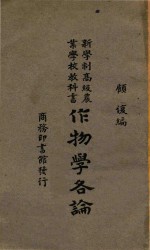 顧復編
新學制高級農
業學校教科書
作物學各論
商務印書館發行